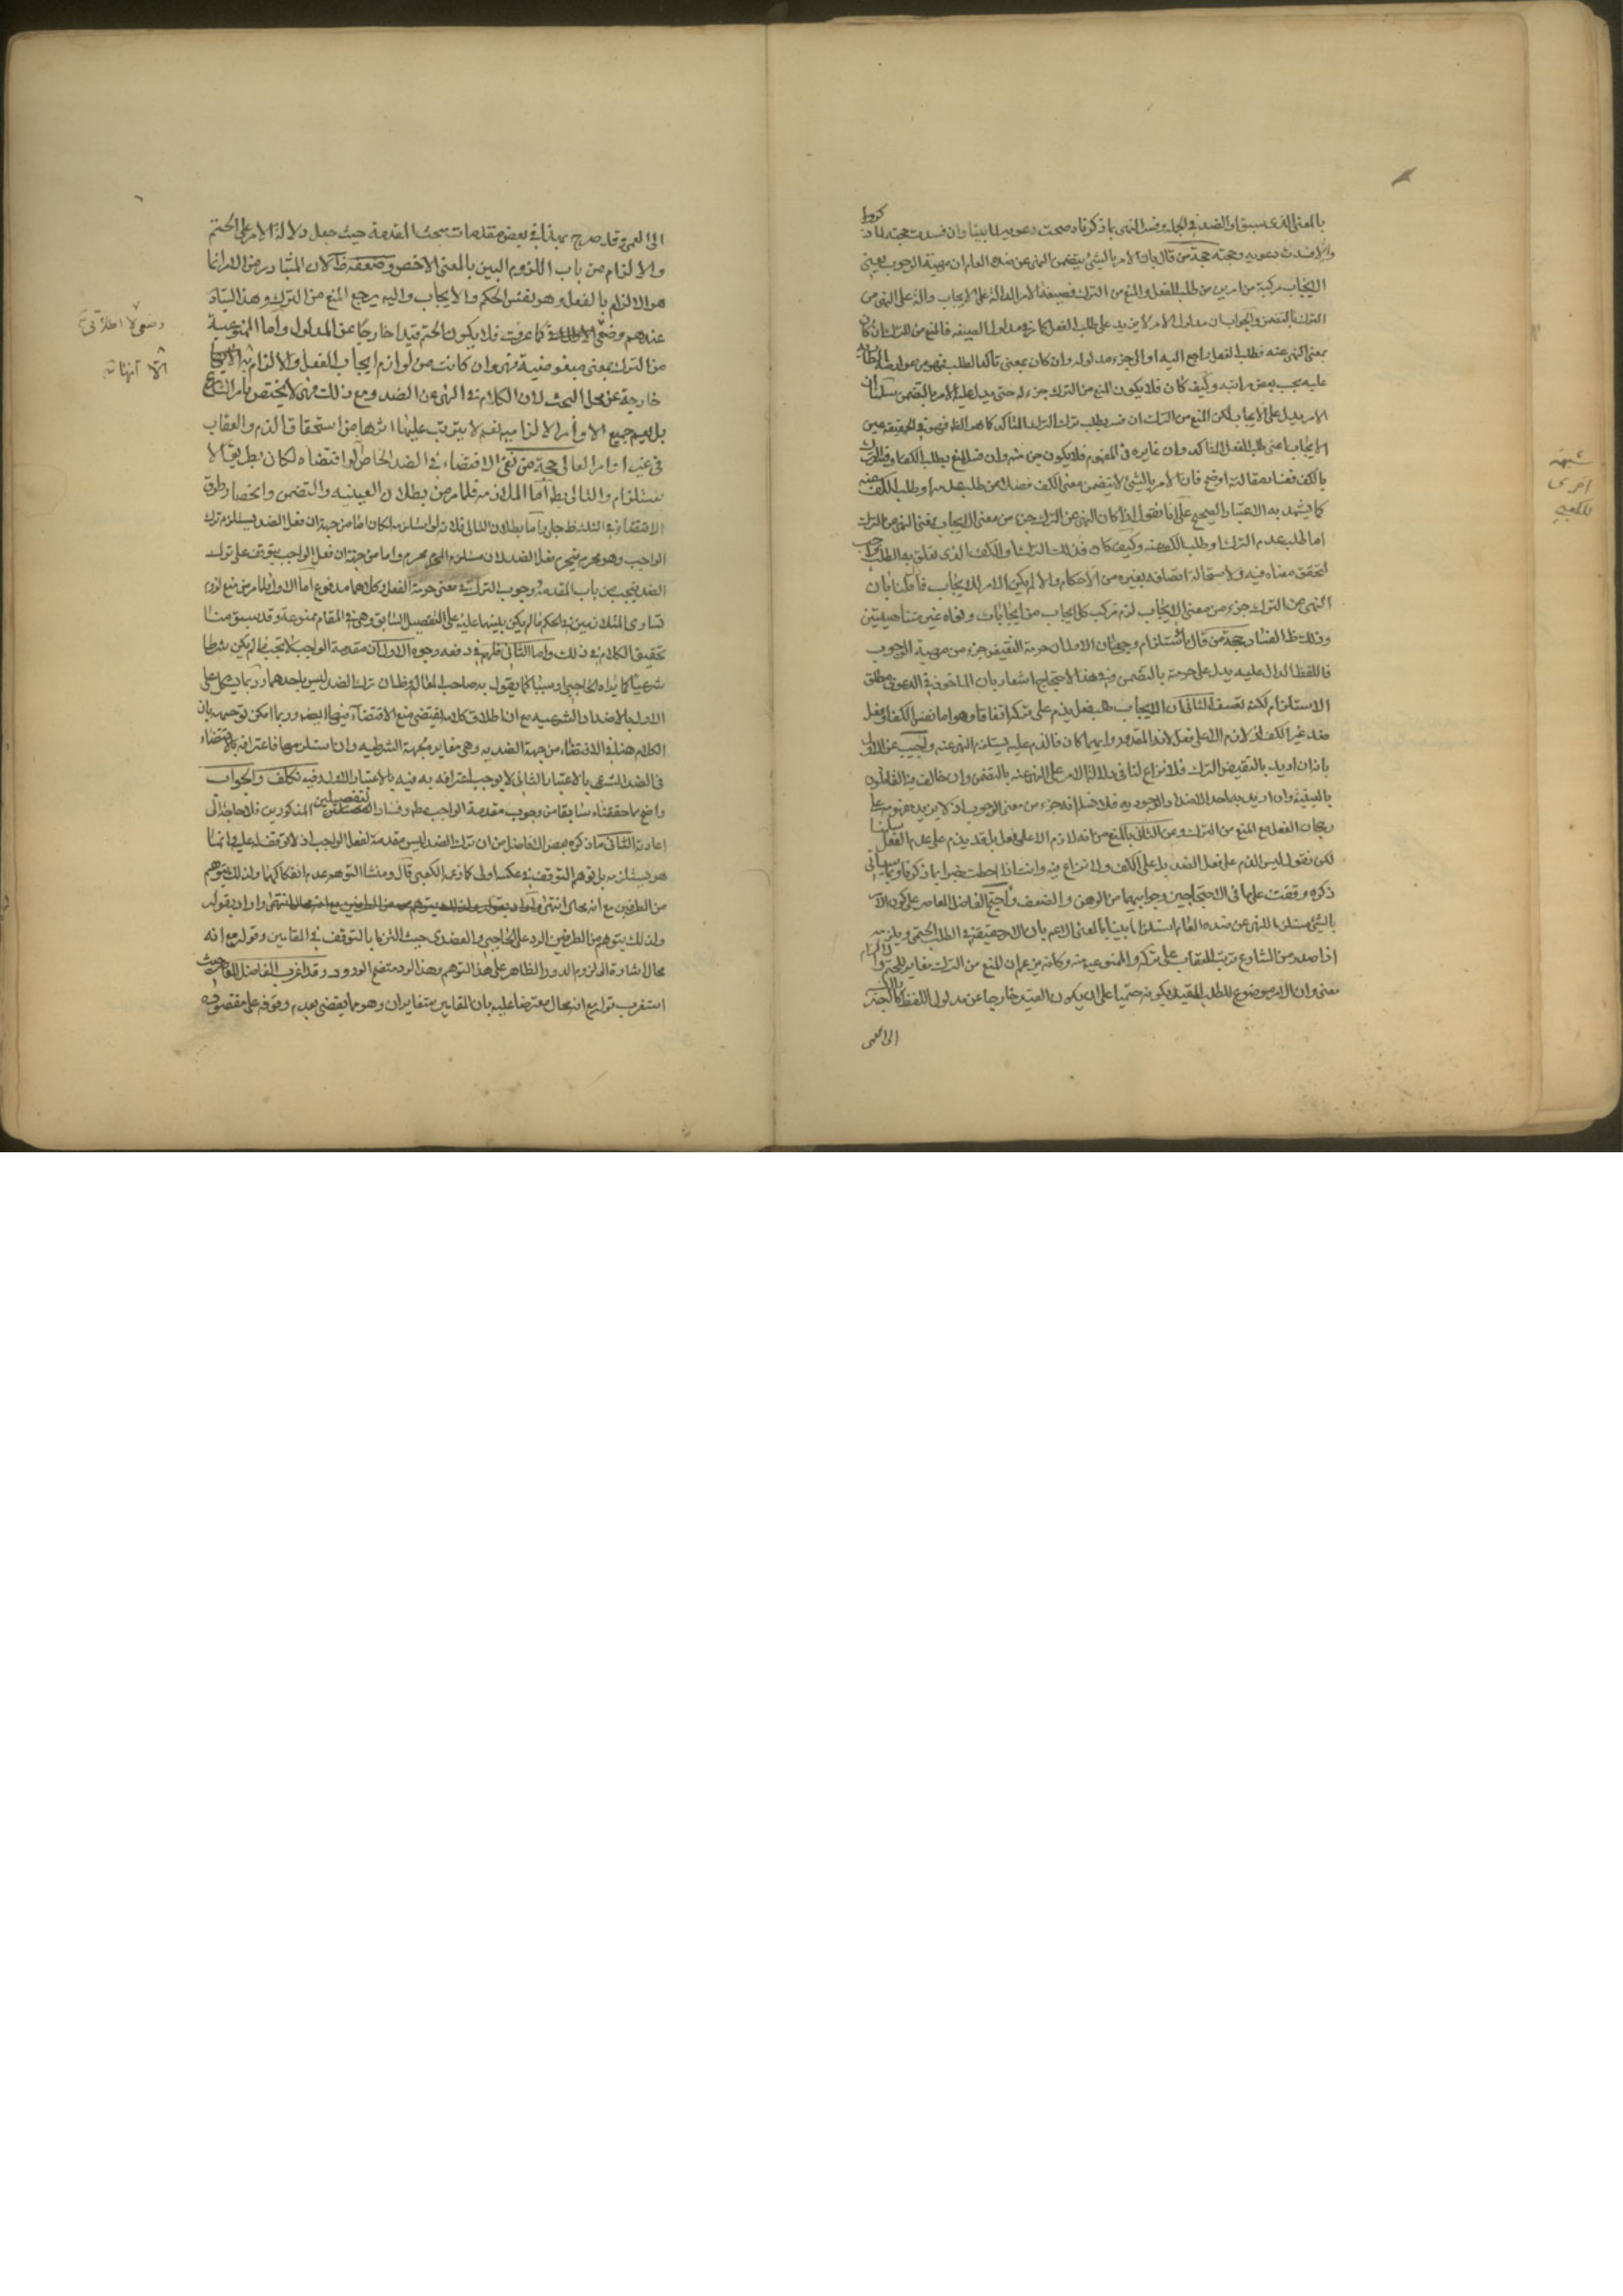 بالمعنى الذى سبق او الضد فى الجملة وفسر النهى بما ذكرناه صحت دعويه لما بينا وان فسدت حجته لما ذكروا
والا فسدت دعويه وحجته حجة من قال بان الامر بالشيئ يتضمن النهى عن ضده العام ان مهية الوجوب يعنى
الايجاب مركبة من امرين من طلب الفعل والمنع من الترك فصيغة الامر الدالة على الايجاب دالة على النهى من
الترك بالتضمن والجواب ان مدلول الامر لا يزيد على طلب الفعل كما هو مدلول الصيغة فالمنع من الترك ان كان
بمعنى النهى عنه فطلب الفعل راجع اليه او الى جزء مدلوله وان كان بمعنى تأكد الطلب فهو من عوارضه الطارية
عليه بحسب بعض مراتبه وكيف كان فلا يكون المنع من الترك جزء له حتى يدل عليه الامر بالتضمن سلمنا ان
الامر يدل على الايجاب لكن المنع من الترك ان فسر بطلب ترك الترك المتأكد كما هو الظ فهو فى الحقيقة عين
الايجاب اعنى طلب الفعل المتأكد وان غايره فى المفهوم فلا يكون جزء منه وان فسر المنع بطلب الكف او فسر الترك
بالكف ففساد مقالته اوضح فان الامر بالشيئ لا يتضمن معنى الكف فضلا عن طلب عدمه او طلب الكف عنه
كما يشهد به الاعتبار الصحيح على انا نقول اذا كان النهى عن الترك جزء من معنى الايجاب فمعنى النهى عن الترك
اما طلب عدم الترك او طلب الكف عنه وكيف كان فذلك الترك او الكف الذى تعلق به الطلب واجب
لتحقق معناه فيه ولاستحالة اتصافه بغيره من الاحكام والا لم يكن الامر للايجاب فاذا قلنا بان
النهى عن الترك جزء من معنى الايجاب لزم تركب كل ايجاب من ايجابات ونواه غير متناهيتين
وذلك ظ الفساد حجة من قال بالاستلزام وجهان الاول ان حرمة النقيض جزء من مهية الوجوب
فاللفظ الدال عليه يدل على حرمته بالتضمن وفى هذا الاحتجاج اشعار بان الماخوذ فى الدعوى مطلق
الاستلزام لكنه تعسف الثانى ان الايجاب طلب فعل يذم على تركه اتفاقا وهو اما نفس الكف او فعل
ضد غير الكف اذ لا ذم الا على فعل لانه المقدور وايهما كان فالذم عليه يستلزم النهى عنه واجيب عن الاول
بانه ان اريد بالنقيض الترك فلا نزاع لنا فى دلالة الامر على النهى عنه بالتضمن وان خالف فيه القائلون
بالعينية وان اريد به احد الاضداد الوجودية فلا نسلم انه جزء من معنى الوجوب اذ لا يزيد مفهومه على
رجحان الفعل مع المنع من الترك وعن الثانى بالمنع من انه لا ذم الا على فعل بل قد يذم على عدم الفعل سلمنا
لكن نقول ليس الذم على فعل الضد بل على الكف ولا نزاع فيه وانت اذا احطت خبرا بما ذكرناه وبما سياتى
ذكره وقفت على ما فى الاحتجاجين وجوابيهما من الوهن والضعف واحتج الفاضل المعاصر على كون الامر
بالشيئ مستلزما للنهى عن ضده العام استلزاما بينا بالمعنى الاعم بان الامر حقيقة فى الطلب الحتمى ويلزمه
اذا صدر من الشارع ترتب العقاب على تركه والممنوعية منه وكانه يزعم ان المنع من الترك مغاير للحتم والالزام
معنى وان الامر موضوع للطلب المقيد بكونه حتميا على ان يكون القيد خارجا عن مدلول اللفظ كالبصر بالنسبة
الى العمى
شبهة
اخرى
للكعبى
الى العمى وقد صرح بهذا فى بعض مقدمات مبحث المقدمة حيث جعل دلالة الامر على الحتم
والالزام من باب اللزوم البين بالمعنى الاخص وضعفه ظ لان المتبادر من الامر انما
هو الالزام بالفعل وهو نفس الحكم والايجاب واليه يرجع المنع من الترك وهذا التبادر
عندهم وضعى لا اطلاقى كما عرفت فلا يكون الحتم قيدا خارجا عن المدلول واما الممنوعية
من الترك بمعنى مبغوضيته فهى وان كانت من لوازم ايجاب الفعل والالزام به الا انها
خارجة عن محل البحث لان الكلام فى النهى عن الضد ومع ذلك فهى لا يختص بامر الشارع
بل يعم جميع الاوامر الالزامية نعم لا يترتب عليها اثرها من استحقاق الذم والعقاب
فى غير اوامر العالى حجة من نفى الاقتضاء فى الضد الخاص لو اقتضاه لكان بطريق الا
ستلزام والتالى بط اما الملازمة فلما مر من بطلان العينية والتضمن وانحصار طرق
الاقتضاء فى الثلث ظ جلى واما بطلان التالى فلانه لو استلزمه لكان اما من جهة ان فعل الضد يستلزم ترك
الواجب وهو محرم فيحرم فعل الضد لان مستلزم المحرم محرم واما من جهة ان فعل الواجب يتوقف على ترك
الضد فيجب من باب المقدمة ووجوب الترك فى معنى حرمة الفعل وكلاهما مدفوع اما الاول فلما مر من منع لزوم
تساوى المتلازمين فى الحكم ما لم يكن بينهما علية على التفصيل السابق وهى فى المقام ممنوعة وقد سبق منا
تحقيق الكلام فى ذلك واما الثانى فلهم فى دفعه وجوه الاول ان مقدمة الواجب لا تجب ما لم يكن شرطا
شرعيا كما يراه الحاجبى او سببا كما يقول به صاحب المعالم وظ ان ترك الضد ليس باحدهما وربما يشكل على
الاول بالاضداد الشرعية مع ان اطلاق كلامه يقتضى منع الاقتضاء فيها ايضا وربما امكن توجيهه بان
الكلام هنا فى الاقتضاء من جهة الضدية وهى مغايرة لجهة الشرطية وان استلزمها فاعترافه بالاقتضاء
فى الضد الشرعى بالاعتبار الثانى لا يوجب اعترافه به فيه بالاعتبار الاول وفيه تكلف والجواب
واضح مما حققناه سابقا من وجوب مقدمة الواجب مطلقا وفساد التفصيلين المذكورين فلا حاجة الى
اعادته الثانى ما ذكره بعض الافاضل من ان ترك الضد ليس مقدمة لفعل الواجب اذ لا توقف له عليه وانما
هو يستلزمه بل توهم التوقف فى عكسه اولى كما زعمه الكعبى قال ومنشا التوهم عدم انفكاكهما ولذلك يتوهم
من الطرفين مع انه محال انتهى واراد بقوله
ولذلك يتوهم من الطرفين الرد على الحاجبى والعضدى حيث التزما بالتوقف فى المقامين وقوله مع انه
محال اشارة الى لزوم الدور والظاهر على هذا التوهم بهذا الرد متضح الورود وقد اغرب الفاضل المعاصر حيث
استغرب قوله مع انه محال معترضا عليه بان المقامين متغايران وهو مما يقضى بعدم وقوفه على مقصوده
وضعى لا اطلاقى
الا انها